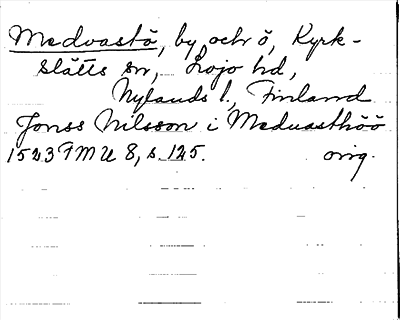 Medvastö, by och ö, Kyrk-
slätts sn, Lojo hd,
Nylands l., Finland
Jonss Nilsson i Meduasthöö
1523 FMU 8, s. 125. orig.